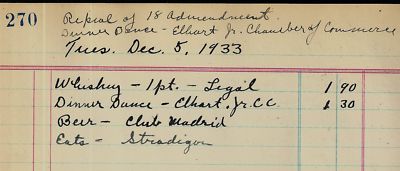 270
Repeal of 18 Admendment.
Dinner Dance - Elkart Jr. Chamber of Commerce
Tues. Dec. 5, 1933
Whiskey - 1 pt. - Legal 1 90
Dinner Dance - Elkart. Jr. C C 1 30
Beer - Club Madrid
Eats - Stradigon